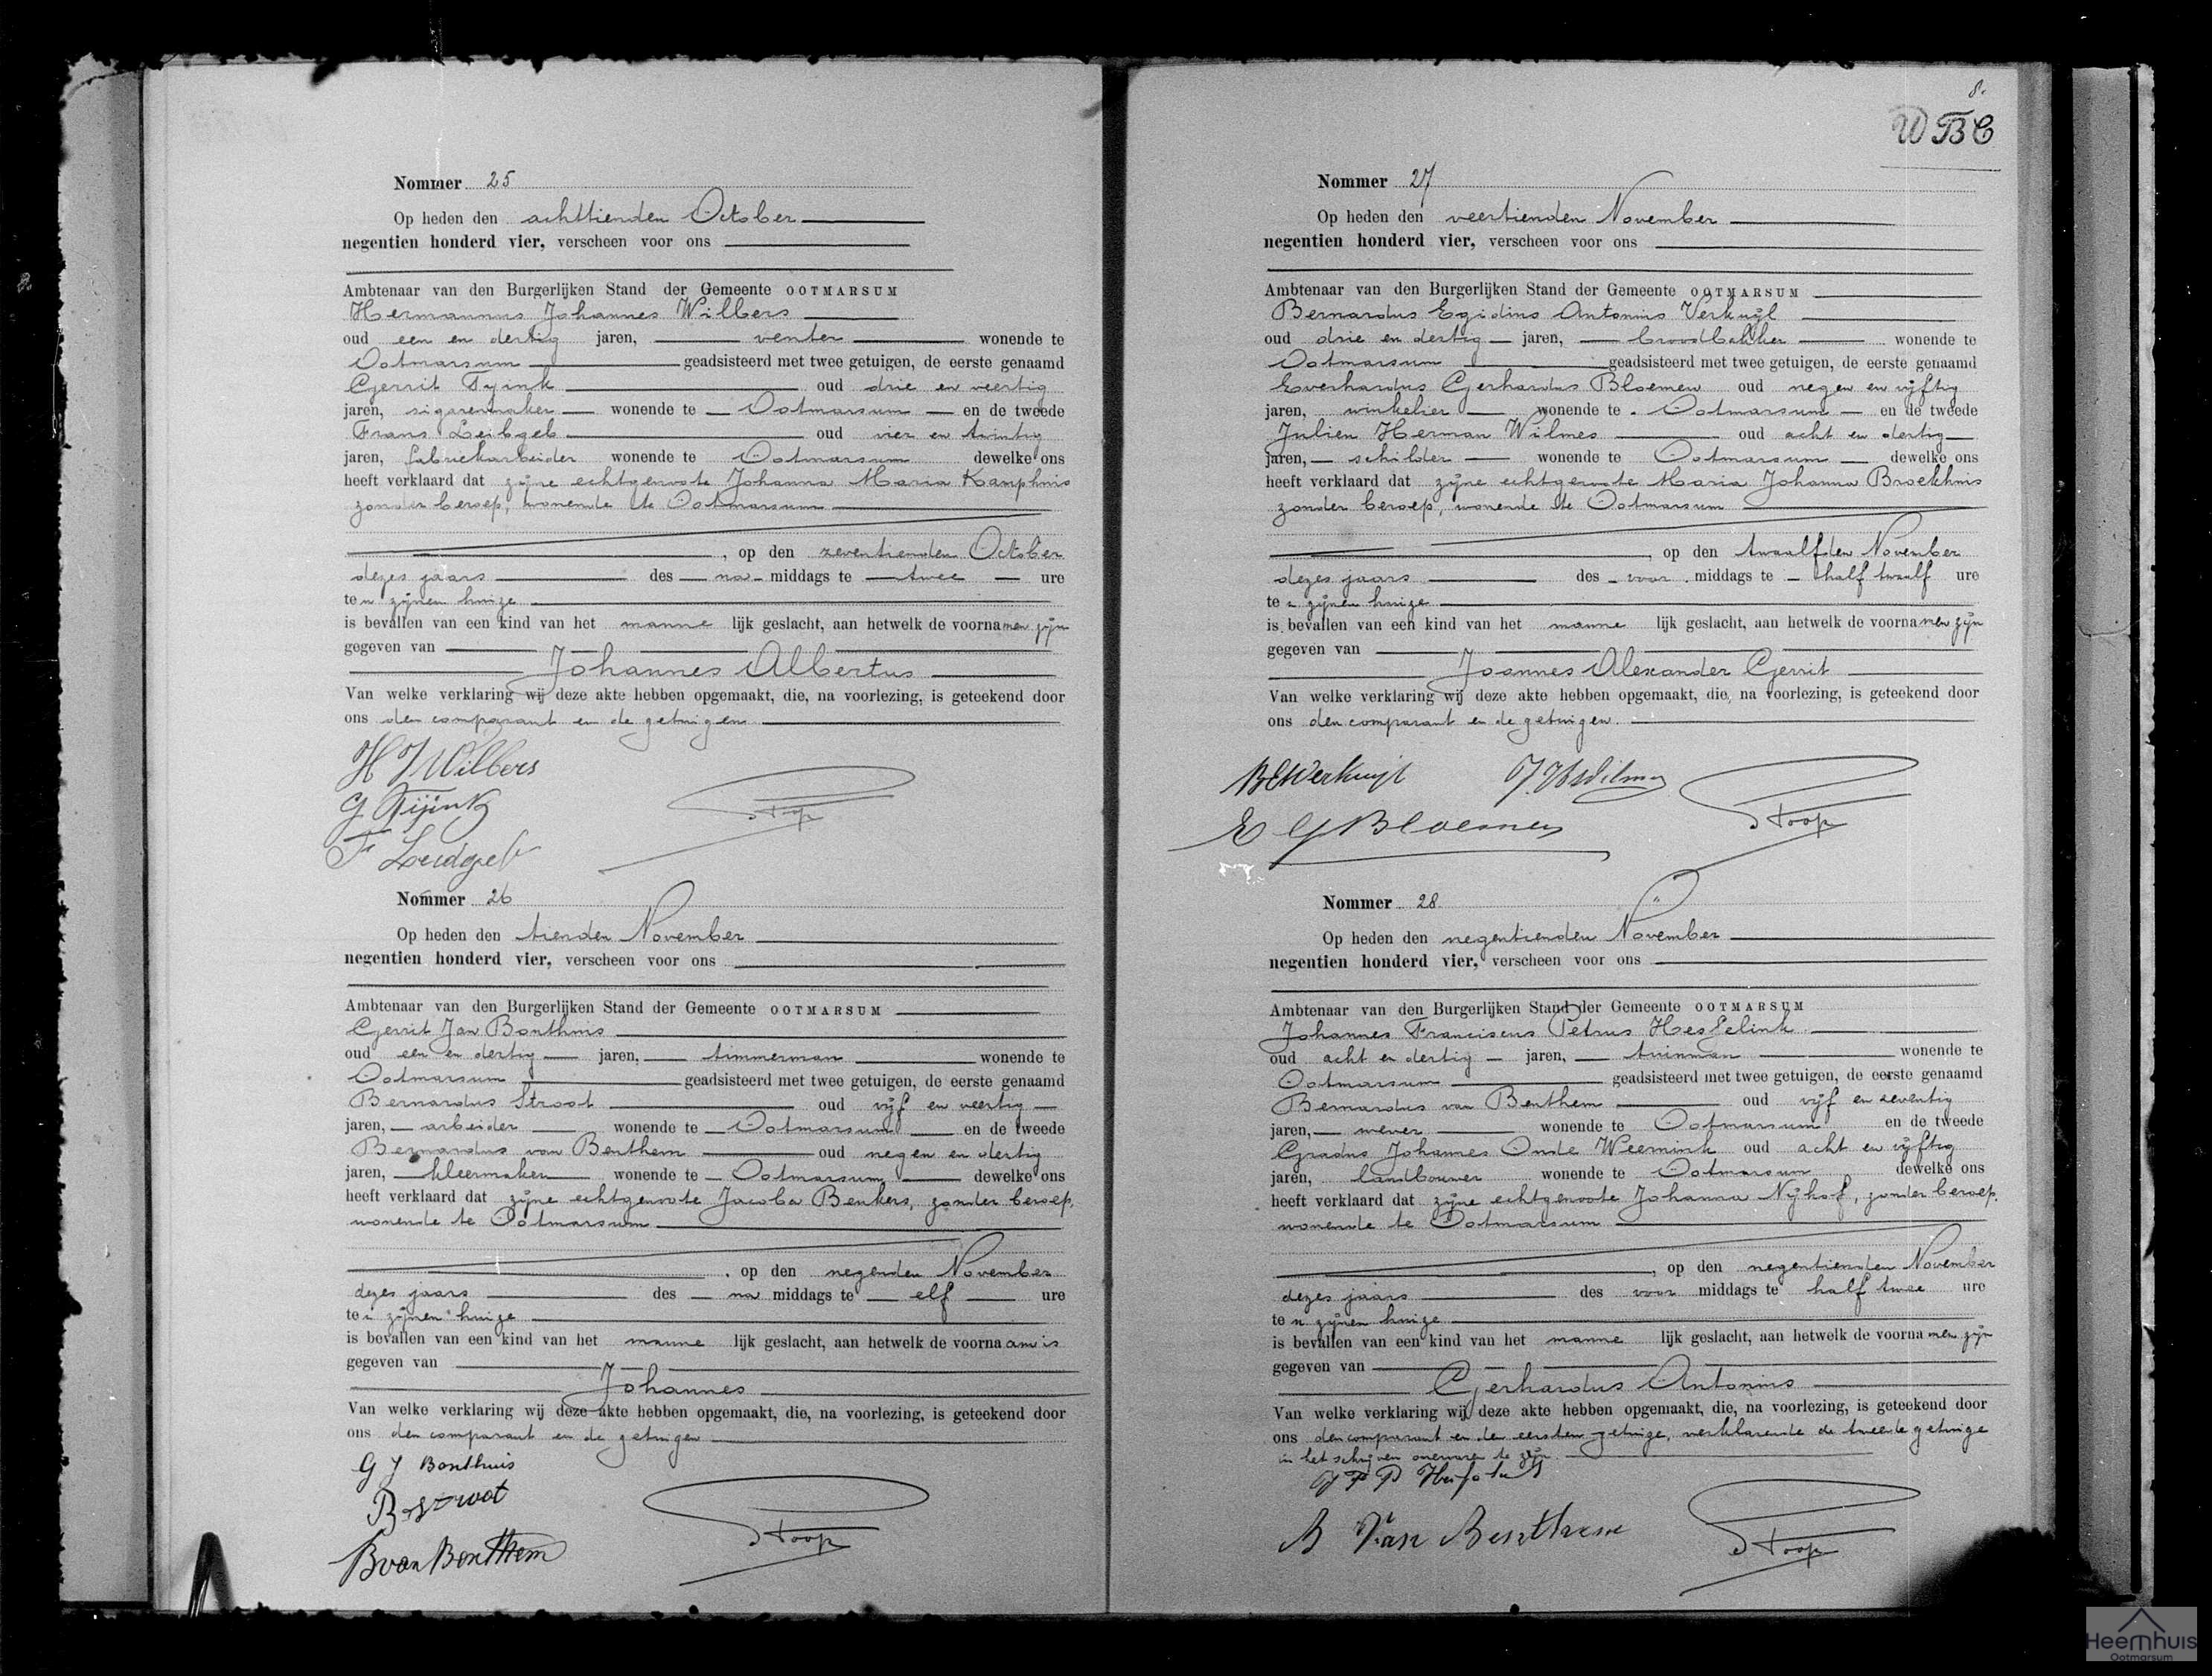 Nommer 25
Op heden den achttienden October
negentien honderd vier, verscheen voor ons
Ambtenaar van den Burgerlijken Stand der Gemeente OOTMARSUM
Hermannus Johannes Wilbers
oud een en dertig jaren, venter wonende te
Ootmarsum geadsisteerd met twee getuigen, de eerste genaamd
Gerrit Tyink oud drie en veertig
jaren, sigarenmaker wonende te Ootmarsum en de tweede
Frans Leibgeb oud vier en twintig
jaren, fabriekarbeider wonende te Ootmarsum dewelke ons
heeft verklaard dat zijne echtgenoote Johanna Maria Kamphuis
zonder beroep, wonende te Ootmarsum
, op den zeventienden October
dezes jaars des na middags te twee ure
te n zijnen huize
is bevallen van een kind van het manne lijk geslacht, aan hetwelk de voornamen zijn
gegeven van
Johannes Albertus
Van welke verklaring wij deze akte hebben opgemaakt, die, na voorlezing, is geteekend door
ons den comparant en de getuigen.
H J Wilbers
G Tijink
F Leidgeb
Stoop
Nommer 26
Op heden den tienden November
negentien honderd vier, verscheen voor ons
Ambtenaar van den Burgerlijken Stand der Gemeente OOTMARSUM
Gerrit Jan Bonthuis
oud een en dertig jaren, timmerman wonende te
Ootmarsum geadsisteerd met twee getuigen, de eerste genaamd
Bernardus Stroot oud vijf en veertig
jaren, arbeider wonende te Ootmarsum en de tweede
Bernardus van Benthem oud negen en dertig
jaren, kleermaker wonende te Ootmarsum dewelke ons
heeft verklaard dat zijne echtgenoote Jacoba Benkers, zonder beroep,
wonende te Ootmarsum
, op den negenden November
dezes jaars des na middags te elf ure
te zijnen huize
is bevallen van een kind van het manne lijk geslacht, aan hetwelk de voornaam is
gegeven van
Johannes
Van welke verklaring wij deze akte hebben opgemaakt, die, na voorlezing, is geteekend door
ons den comparant en de getuigen
G J Bonthuis
B Stroot
B van Benthem
Stoop
8.
WBC
Nommer 27
Op heden den veertienden November
negentien honderd vier, verscheen voor ons
Ambtenaar van den Burgerlijken Stand der Gemeente OOTMARSUM
Bernardus Egidius Antonius Verkuijl
oud drie en dertig jaren, broodbakker wonende te
Ootmarsum geadsisteerd met twee getuigen, de eerste genaamd
Everhardus Gerhardus Bloemen oud negen en vijftig
jaren, winkelier wonende te Ootmarsum en de tweede
Julien Herman Wilmes oud acht en dertig
jaren, schilder wonende te Ootmarsum dewelke ons
heeft verklaard dat zijne echtgenoote Maria Johanna Broekhuis
zonder beroep, wonende te Ootmarsum
, op den twaalfden November
dezes jaars des voor middags te half twaalf ure
te zijnen huize
is bevallen van een kind van het manne lijk geslacht, aan hetwelk de voornamen zijn
gegeven van
Joannes Alexander Gerrit
Van welke verklaring wij deze akte hebben opgemaakt, die, na voorlezing, is geteekend door
ons den comparant en de getuigen.
BEVerkuijl
J. H Wilmes
E G Bloemen
Stoop
Nommer 28
Op heden den negentienden November
negentien honderd vier, verscheen voor ons
Ambtenaar van den Burgerlijken Stand der Gemeente OOTMARSUM
Johannes Franciscus Petrus Hesselink
oud acht en dertig jaren, tuinman wonende te
Ootmarsum geadsisteerd met twee getuigen, de eerste genaamd
Bernardus van Benthem oud vijf en zeventig
jaren, wever wonende te Ootmarsum en de tweede
Gradus Johannes Oude Weernink oud acht en vijftig
jaren, landbouwer wonende te Ootmarsum dewelke ons
heeft verklaard dat zijne echtgenoote Johanna Nijhof, zonder beroep,
wonende te Ootmarsum
, op den negentienden November
dezes jaars des voor middags te half twee ure
te n zijnen huize
is bevallen van een kind van het manne lijk geslacht, aan hetwelk de voornamen zijn
gegeven van
Gerhardus Antonius
Van welke verklaring wij deze akte hebben opgemaakt, die, na voorlezing, is geteekend door
ons den comparant en den eersten getuige, verklarende de tweede getuige
in het schrijven onervaren te zijn.
B Van Benthem
Stoop
Heemhuis
Ootmarsum